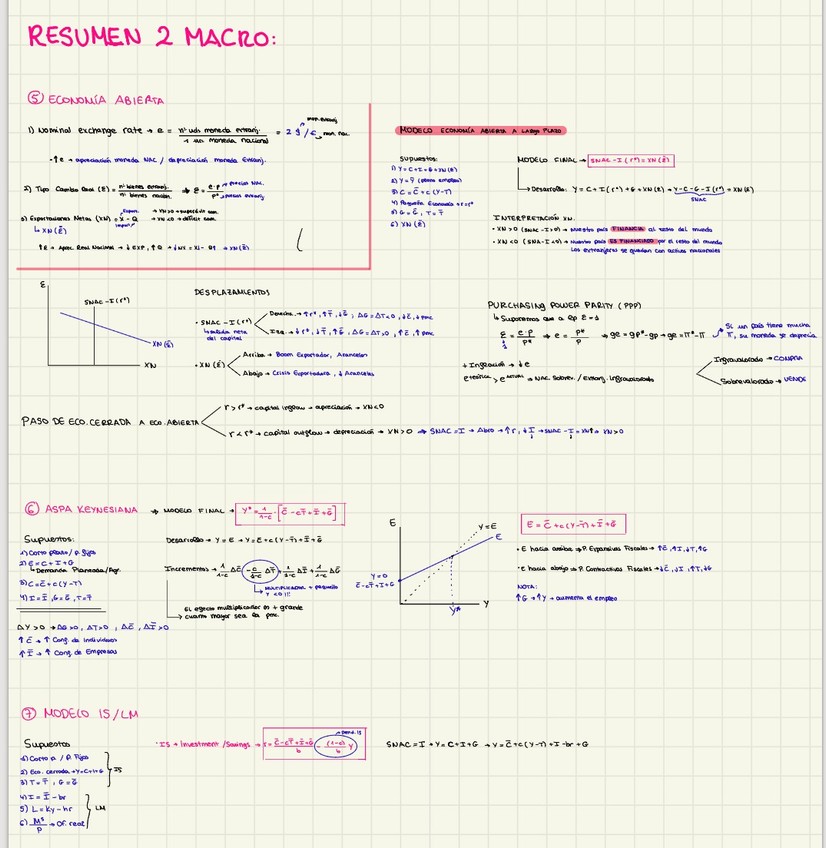 RESUMEN 2 MACRO:
⑤ ECONOMÍA ABIERTA
1) Nominal exchange rate → e = nº uds moneda extranj. / 1 un moneda nacional = 2 $/€
· ↑e → apreciación moneda NAC / depreciación moneda Extranj.
2) Tipo Cambio Real (ε) = nº bienes extranj. / nº bienes nacion. ⇒ ε = e·P / P*
→ precios NAC.
→ precios extranj
3) Exportaciones Netas (XN) = X - Q
→ XN>0 → superávit com.
→ XN<0 → déficit com.
↳ XN(ε)
MODELO ECONOMÍA ABIERTA A LARGO PLAZO
Supuestos:
1) Y = C+I+G+XN(ε)
2) Y = Ȳ (pleno empleo)
3) C = C̄ + c(Y-T)
4) Pequeña Economía → r=r*
5) G = Ḡ, T = T̄
6) XN(ε)
MODELO FINAL → SNAC - I(r*) = XN(ε)
Desarrollo: Y = C + I(r*) + G + XN(ε) → Y-C-G-I(r*) = XN(ε)
SNAC
INTERPRETACIÓN XN.
· XN>0 (SNA-I>0) → Nuestro país FINANCIA al resto del mundo
· XN<0 (SNA-I<0) → Nuestro país ES FINANCIADO por el resto del mundo
Los extranjeros se quedan con activos nacionales
ε
SNAC - I(r*)
XN(ε)
XN
DESPLAZAMIENTOS
· SNAC - I(r*)
↳ salida neta del capital
· XN(ε)
Arriba → Boom Exportador, Aranceles
Abajo → Crisis Exportadora, ↓ Aranceles
PURCHASING POWER PARITY (PPP)
↳ Suponemos que a lp ε = 1
ε = e·P / P* → e = P* / P → ge = gP* - gP → ge = π* - π
Si un país tiene mucha π, su moneda se deprecia
+ Inflación → ↓e
Infravalorado → COMPRA
Sobrevalorado → VENDE
PASO DE ECO. CERRADA A ECO. ABIERTA
r > r* → capital inflow → apreciación → XN<0
r < r* → capital outflow → depreciación → XN>0
⑥ ASPA KEYNESIANA → MODELO FINAL → Y* = 1/1-c · [C̄ - cT̄ + Ī + Ḡ]
Supuestos:
1) Corto plazo / P. fijos
2) E = C+I+G
↳ Demanda Planeada/Agr.
3) C = C̄ + c(Y-T)
4) I = Ī, G = Ḡ, T = T̄
Desarrollo → Y = E → Y = C̄ + c(Y-T̄) + Ī + Ḡ
Incrementos → 1/1-c ΔC̄ -c/1-c ΔT̄ + 1/1-c ΔĪ + 1/1-c ΔḠ
Multiplicador + pequeño y <0 !!!
El efecto multiplicador es + grande cuanto mayor sea la pmc.
ΔY>0 → ΔG>0, ΔT>0, ΔC̄, ΔĪ>0
↑C̄ → ↑ Conf. de Individuos
↑Ī → ↑ Conf. de Empresas
E
Y=E
E
Y=0
C̄-cT̄+Ī+Ḡ
Y*
Y
E = C̄ + c(Y-T̄) + Ī + Ḡ
· E hacia arriba → P. Expansivas Fiscales → ↑C̄, ↑I, ↓T, ↑G
· E hacia abajo → P. Contractivas Fiscales → ↓C̄, ↓I, ↑T, ↓G
NOTA:
↑G → ↑Y → aumenta el empleo
⑦ MODELO IS/LM
Supuestos
1) Corto p. / P. Fijos
2) Eco. cerrada → Y=C+I+G
3) T = T̄, G = Ḡ
IS
4) I = Ī - br
5) L = Ky - hr
6) Mˢ/P → Of. real
LM
· IS → Investment / Savings → r = C̄-cT̄+Ī+Ḡ / b - (1-c)/b Y
SNAC = I → Y = C+I+G → Y = C̄+c(Y-T)+I-br+G